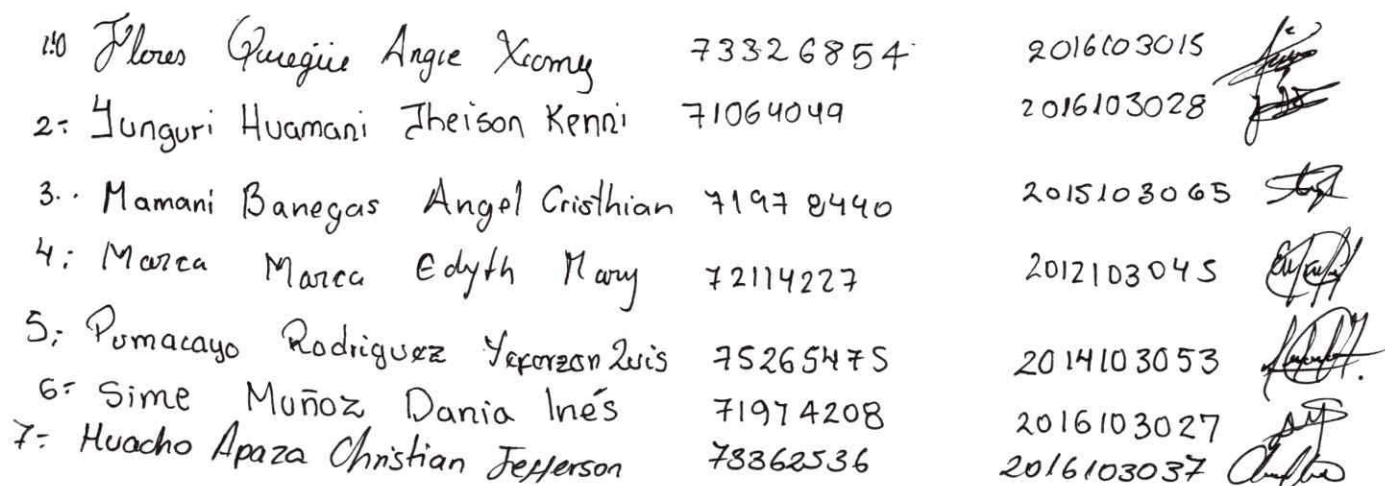 Flores Quregüe Angie Xiomy 73326854 2016103015
2.- Yunguri Huamani Jheison Kenni 71064049 2016103028
3.- Mamani Banegas Angel Cristhian 71978440 2015103065
4.- Marca Marca Edyth Mary 72114227 2012103045
5.- Pumacayo Rodriguez Luis 75265475 2014103053
6.- Sime Muñoz Dania Inés 71974208 2016103027
7.- Huacho Apaza Christian Jefferson 73362536 2016103037